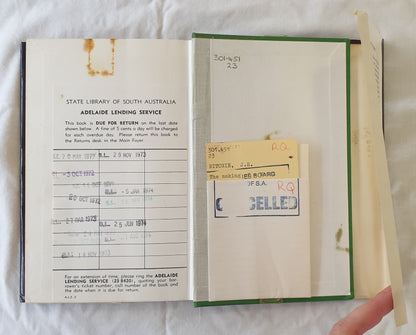 STATE LIBRARY OF SOUTH AUSTRALIA
ADELAIDE LENDING SERVICE
This book is DUE FOR RETURN on the last date
shown below. A fine of 5 cents a day will be charged
for each overdue day. Please return this book to
the Returns desk in the Main Foyer
MAY 1972 29 NOV 1973
OCT 1972
5 JAN 1974
OCT 1972
MAR 1973 25 JUN 1974
For an extension of time, please ring the ADELAIDE
LENDING SERVICE (23 8420), quoting your bor-
rower's ticket number, call number of the book and
the date when it is due for return.
301.451
23
RQ
301.451
23
RITCHIE, J.E.
The making
BOARD
OF S.A. RQ
CANCELLED